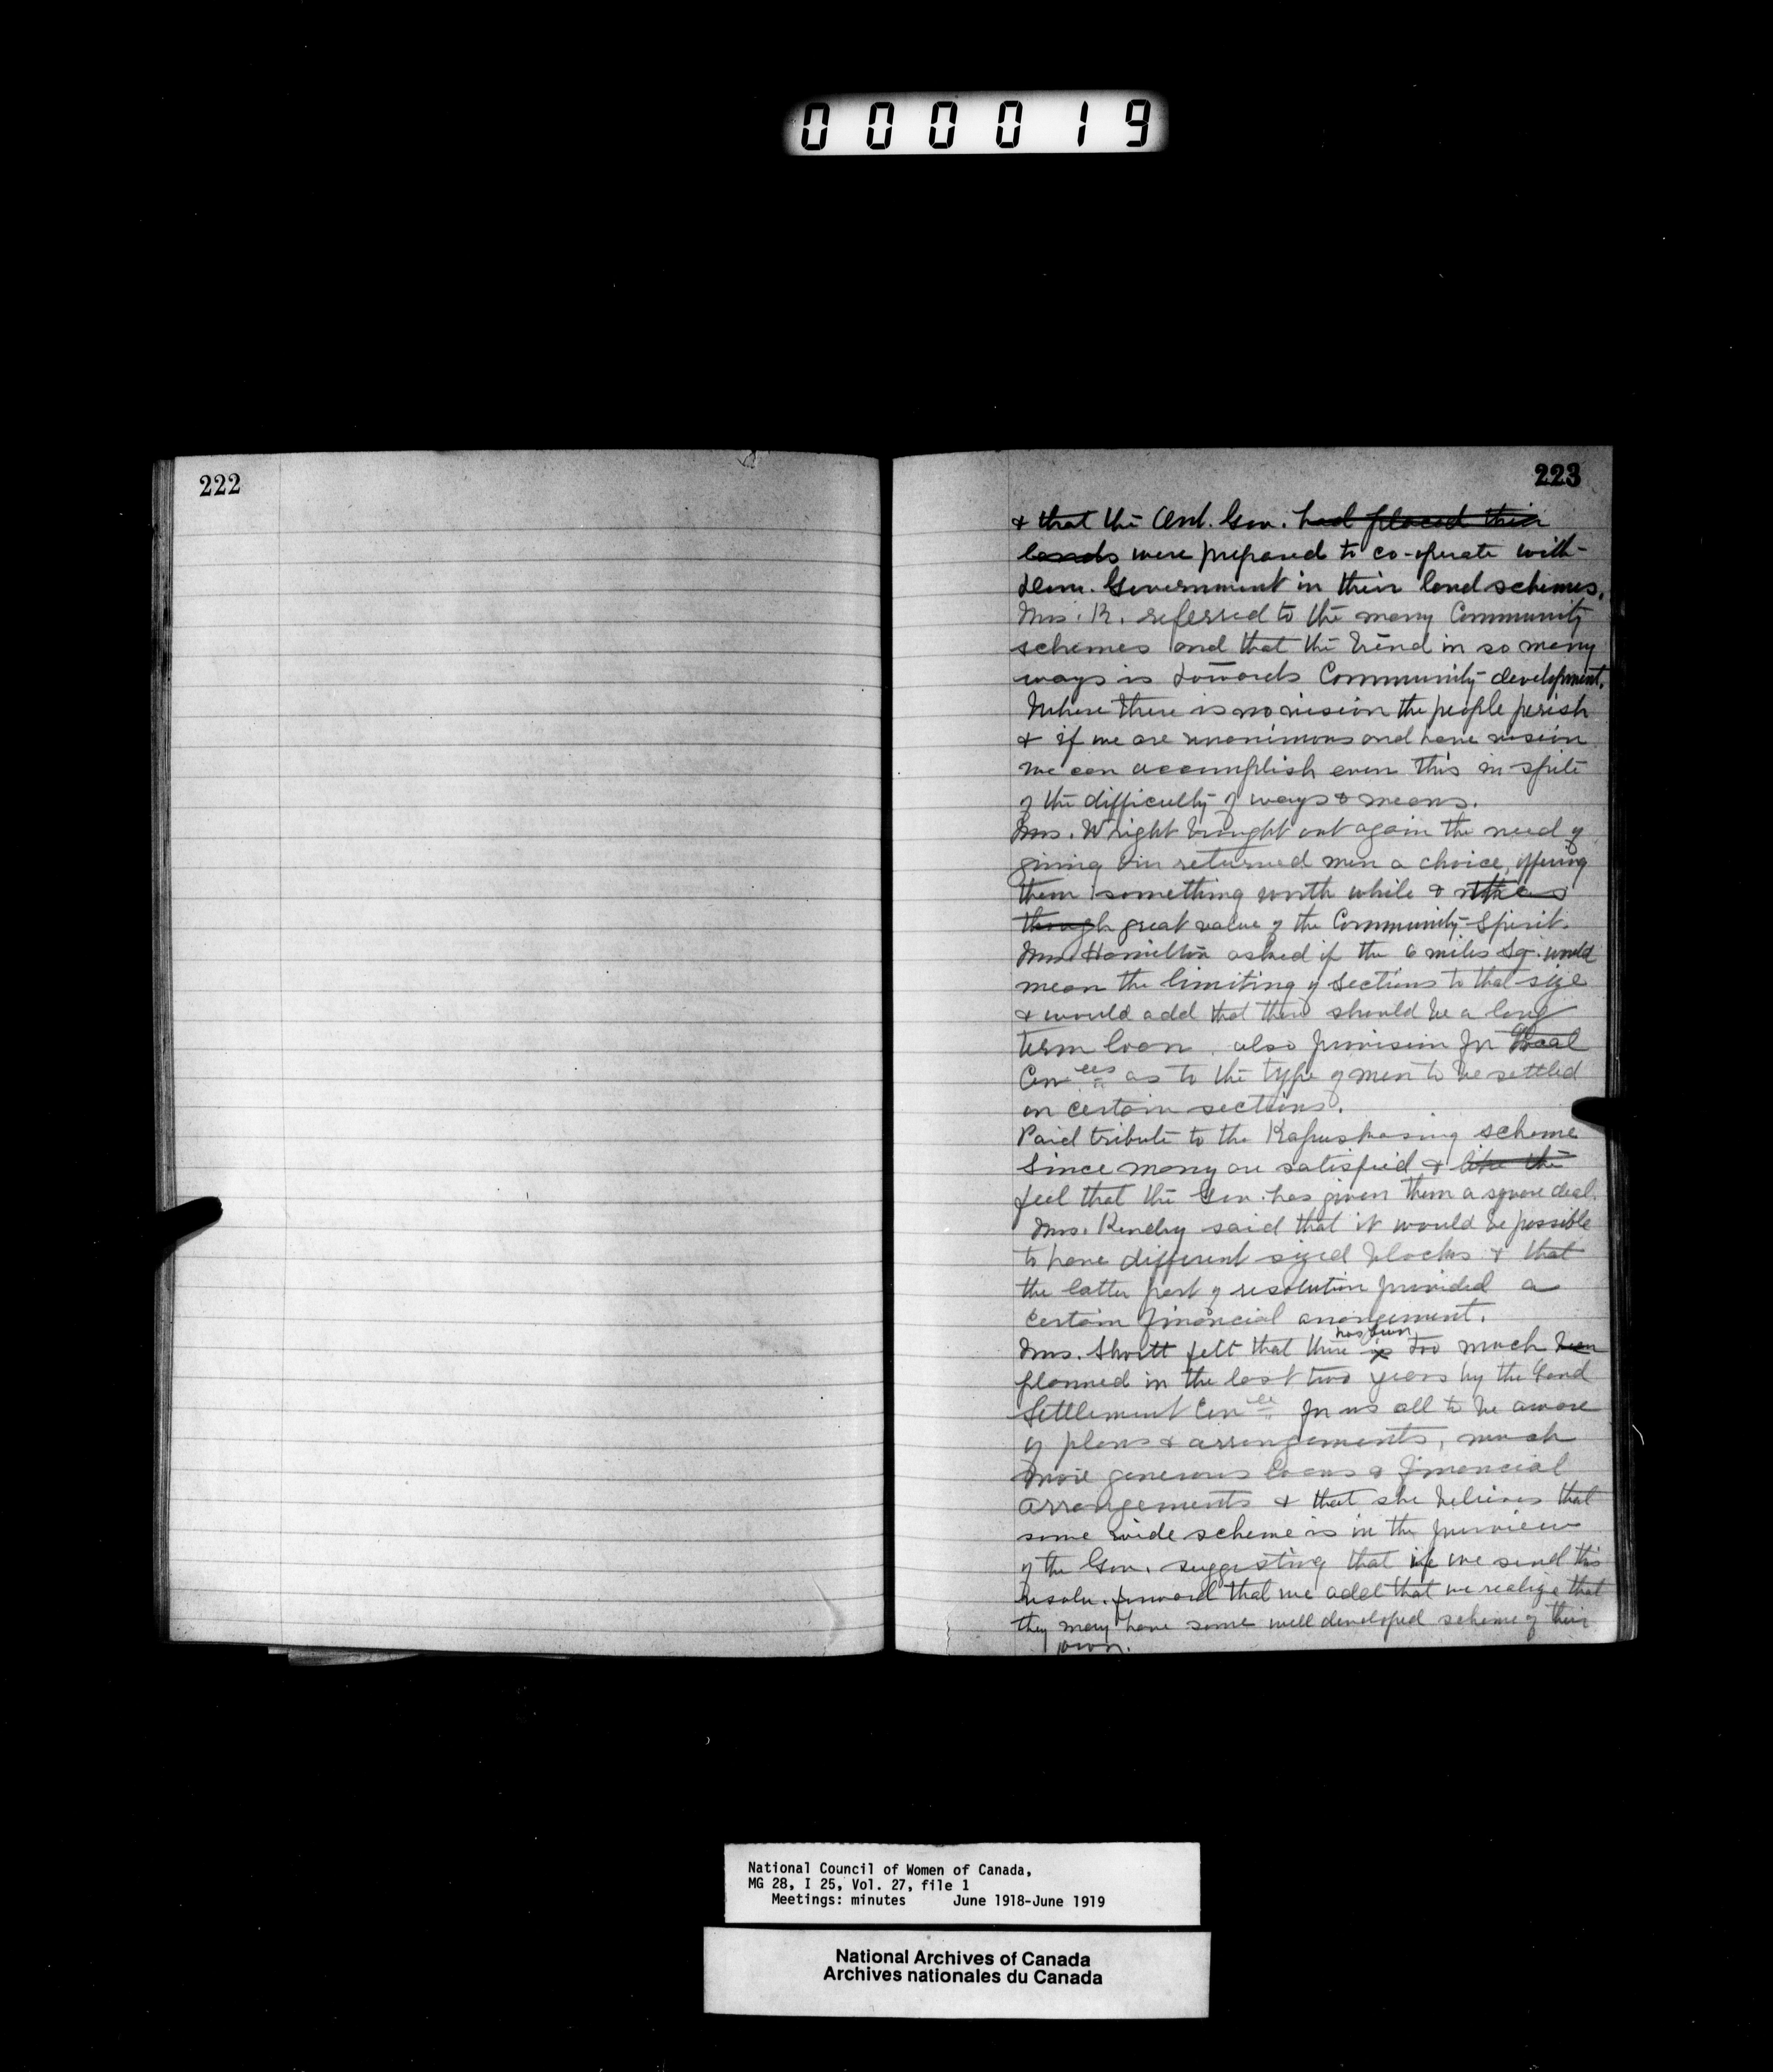 000019
222
223
& that the Ont. Gov. had placed their
lands were prepared to co-operate with
Dom. Government in their land schemes.
Mrs. K. referred to the many Community
schemes and that the trend in so many
ways is towards Community development.
Where there is no vision the people perish
& if we are unanimous and have vision
we can accomplish even this in spite
of the difficulty of ways & means.
Mrs. Wright brought out again the need of
giving our returned men a choice, offering
them something worth while &
though great value of the Community Spirit.
Mrs. Hamilton asked if the 6 miles sq. would
mean the limiting of sections to that size
& would add that there should be a long
term loan. also provision for local
Com ees as to the type of men to be settled
on certain sections.
Paid tribute to the Kapuskasing scheme
since many are satisfied & like the
feel that the Gov. has given them a square deal.
Mrs. Kendry said that it would be possible
to have different sized blocks & that
the latter part of resolution provided a
certain financial arrangement.
has been
Mrs. Shortt felt that there is too much been
planned in the last two years by the Land
Settlement Com ee for us all to be aware
of plans & arrangements, much
more generous loans & financial
arrangements & that she believes that
some wide scheme is in the purview
of the Gov. suggesting that if we send this
resolu. forward that we add that we realize that
they may have some well developed scheme of their
own.
National Council of Women of Canada,
MG 28, I 25, Vol. 27, file 1
Meetings: minutes June 1918-June 1919
National Archives of Canada
Archives nationales du Canada